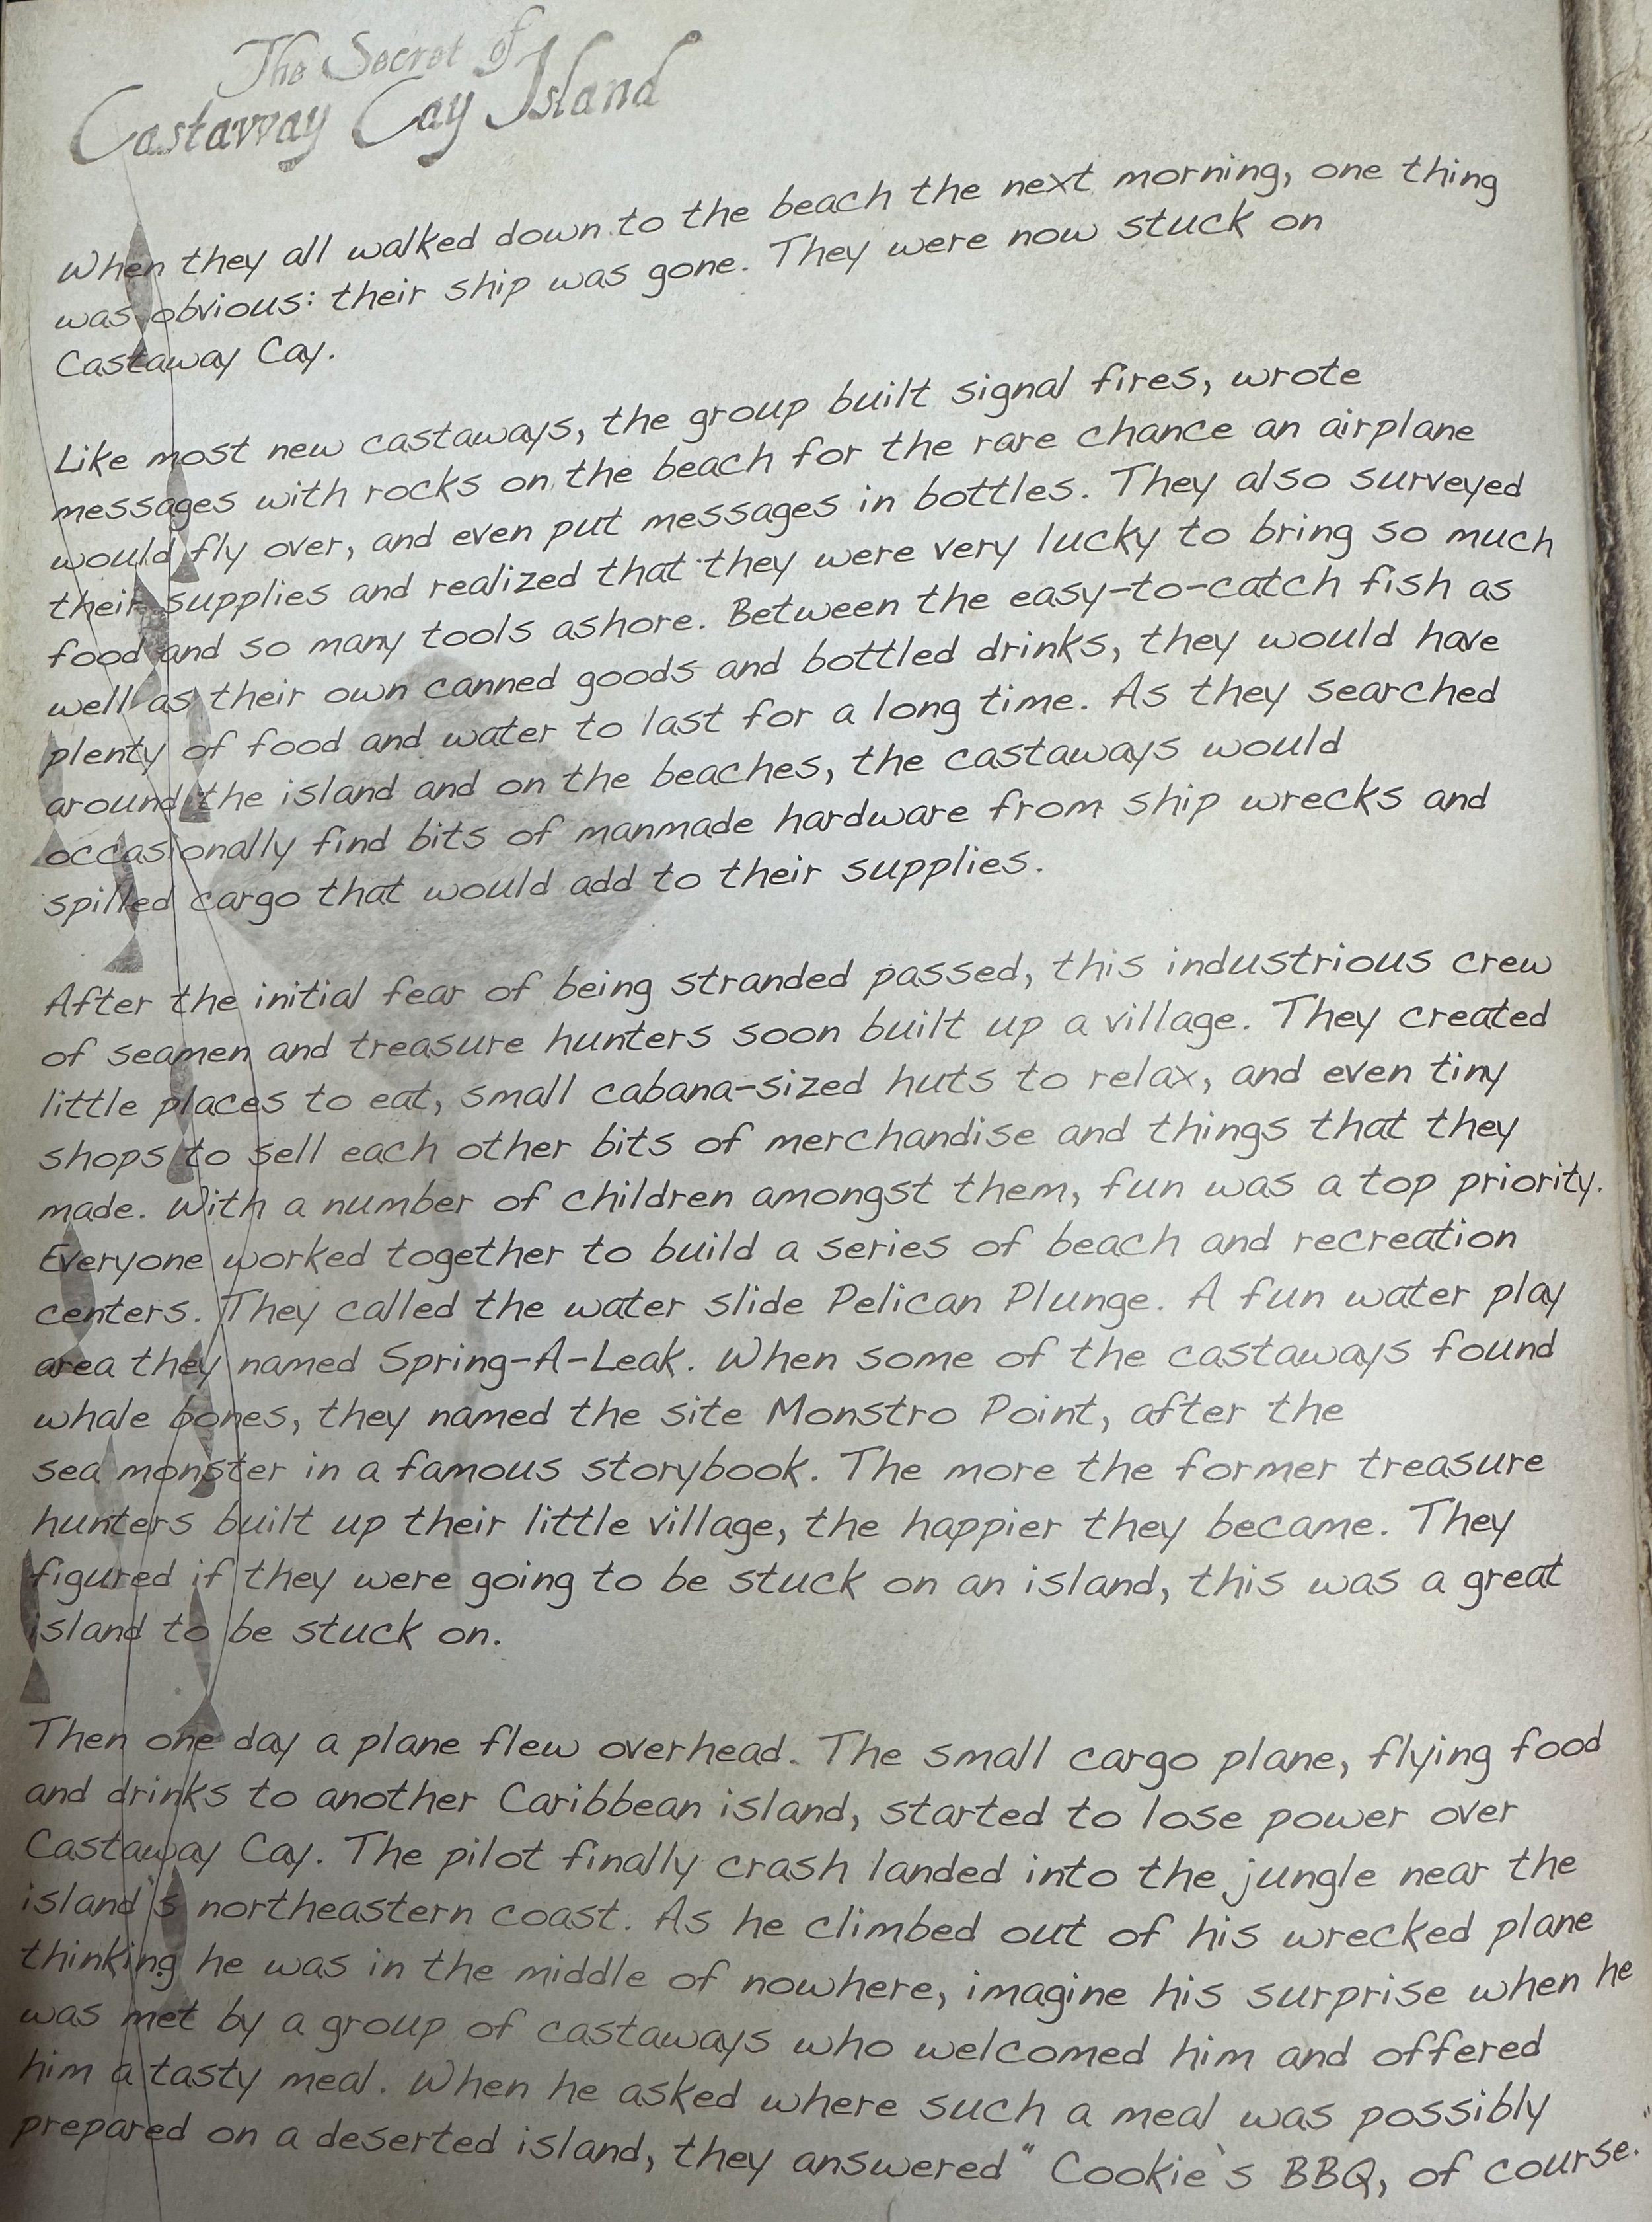 The Secret of
Castaway Cay Island
When they all walked down to the beach the next morning, one thing
was obvious: their ship was gone. They were now stuck on
Castaway Cay.
Like most new castaways, the group built signal fires, wrote
messages with rocks on the beach for the rare chance an airplane
would fly over, and even put messages in bottles. They also surveyed
their supplies and realized that they were very lucky to bring so much
food and so many tools ashore. Between the easy-to-catch fish as
well as their own canned goods and bottled drinks, they would have
plenty of food and water to last for a long time. As they searched
around the island and on the beaches, the castaways would
occasionally find bits of manmade hardware from ship wrecks and
spilled cargo that would add to their supplies.
After the initial fear of being stranded passed, this industrious crew
of seamen and treasure hunters soon built up a village. They created
little places to eat, small cabana-sized huts to relax, and even tiny
shops to sell each other bits of merchandise and things that they
made. With a number of children amongst them, fun was a top priority.
Everyone worked together to build a series of beach and recreation
centers. They called the water slide Pelican Plunge. A fun water play
area they named Spring-A-Leak. When some of the castaways found
whale bones, they named the site Monstro Point, after the
sea monster in a famous storybook. The more the former treasure
hunters built up their little village, the happier they became. They
figured if they were going to be stuck on an island, this was a great
island to be stuck on.
Then one day a plane flew overhead. The small cargo plane, flying food
and drinks to another Caribbean island, started to lose power over
Castaway Cay. The pilot finally crash landed into the jungle near the
island's northeastern coast. As he climbed out of his wrecked plane
thinking he was in the middle of nowhere, imagine his surprise when he
was met by a group of castaways who welcomed him and offered
him a tasty meal. When he asked where such a meal was possibly
prepared on a deserted island, they answered "Cookie's BBQ, of course."